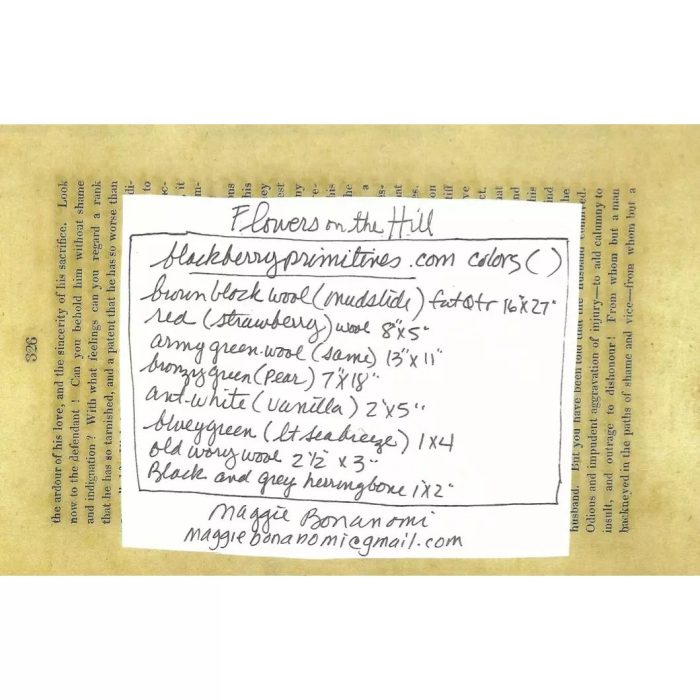 Flowers on the Hill
blackberryprimitives.com colors ( )
brown block wool (mudslide) fat Qtr 16"X27"
red (strawberry) wool 8"X5"
army green-wool (same) 13"X11"
bronzy green (Pear) 7"X18"
ant-white (vanilla) 2"X5"
blueygreen (lt seabreeze) 1X4
old ivory wool 2 1/2 X3"
Black and grey herringbone 1X2"
Maggie Bonanomi
maggiebonanomi@gmail.com
326
the ardour of his love, and the sincerity of his sacrifice. Look
now to the defendant ! Can you behold him without shame
and indignation ? With what feelings can you regard a rank
that he has so tarnished, and a patent that he has so worse than
husband. But you have been told that the husband connived.
Odious and impudent aggravation of injury—to add calumny to
insult, and outrage to dishonour ! From whom but a man
hackneyed in the paths of shame and vice—from whom but a